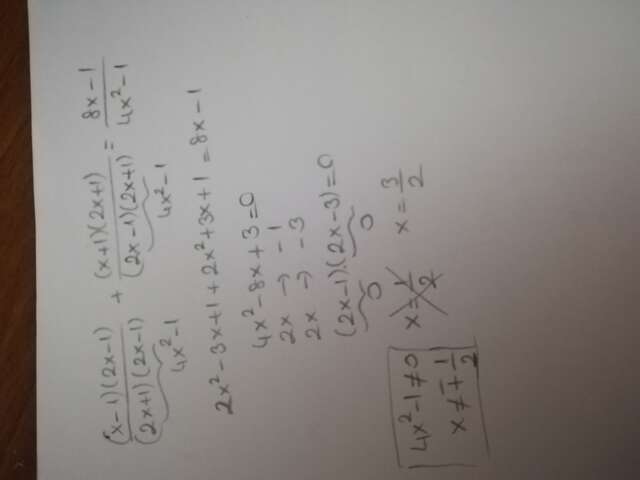 (x-1)(2x-1)/(2x+1)(2x-1) + (x+1)(2x+1)/(2x-1)(2x+1) = 8x-1/4x²-1
4x²-1 4x²-1
2x²-3x+1+2x²+3x+1=8x-1
4x²-8x+3=0
2x → -1
2x → -3
(2x-1).(2x-3)=0
0 0
x=1/2 x=3/2
4x²-1≠0
x≠∓1/2